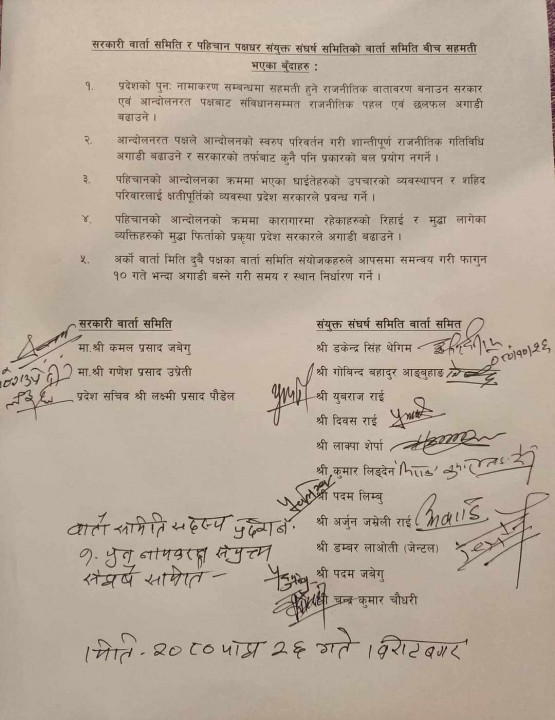 सरकारी वार्ता समिति र पहिचान पक्षधर संयुक्त संघर्ष समितिको वार्ता समिति बीच सहमती
भएका बुँदाहरु :
१. प्रदेशको पुनः नामाकरण सम्बन्धमा सहमती हुने राजनीतिक वातावरण बनाउन सरकार
एवं आन्दोलनरत पक्षबाट संविधानसम्मत राजनीतिक पहल एवं छलफल अगाडी
बढाउने ।
२. आन्दोलनरत पक्षले आन्दोलनको स्वरुप परिवर्तन गरी शान्तीपूर्ण राजनीतिक गतिविधि
अगाडी बढाउने र सरकारको तर्फबाट कुनै पनि प्रकारको बल प्रयोग नगर्ने ।
३. पहिचानको आन्दोलनका क्रममा भएका घाईतेहरुको उपचारको व्यवस्थापन र शहिद
परिवारलाई क्षतीपूर्तिको व्यवस्था प्रदेश सरकारले प्रवन्ध गर्ने ।
४. पहिचानको आन्दोलनको क्रममा कारागारमा रहेकाहरुको रिहाई र मुद्धा लागेका
व्यक्तिहरुको मुद्धा फिर्ताको प्रकृया प्रदेश सरकारले अगाडी बढाउने ।
५. अर्को वार्ता मिति दुबै पक्षका वार्ता समिति संयोजकहरुले आपसमा समन्वय गरी फागुन
१० गते भन्दा अगाडी बस्ने गरी समय र स्थान निर्धारण गर्ने ।
सरकारी वार्ता समिति
मा.श्री कमल प्रसाद जबेगु
मा.श्री गणेश प्रसाद उप्रेती
प्रदेश सचिव श्री लक्ष्मी प्रसाद पौडेल
संयुक्त संघर्ष समिति वार्ता समित
श्री डकेन्द्र सिंह थेगिम
श्री गोबिन्द बहादुर आङ्बुहाङ
श्री युबराज राई
श्री दिवस राई
श्री लाक्पा शेर्पा
श्री कुमार लिङ्देन
श्री पदम लिम्बु
श्री अर्जुन जम्नेली राई
श्री डम्बर लाओती (जेन्टल)
श्री पदम जबेगु
श्री चन्द्र कुमार चौधरी
वार्ता समिति सदस्य
संघर्ष समिति -
मिति - २०८० माघ २६ गते बिराटनगर